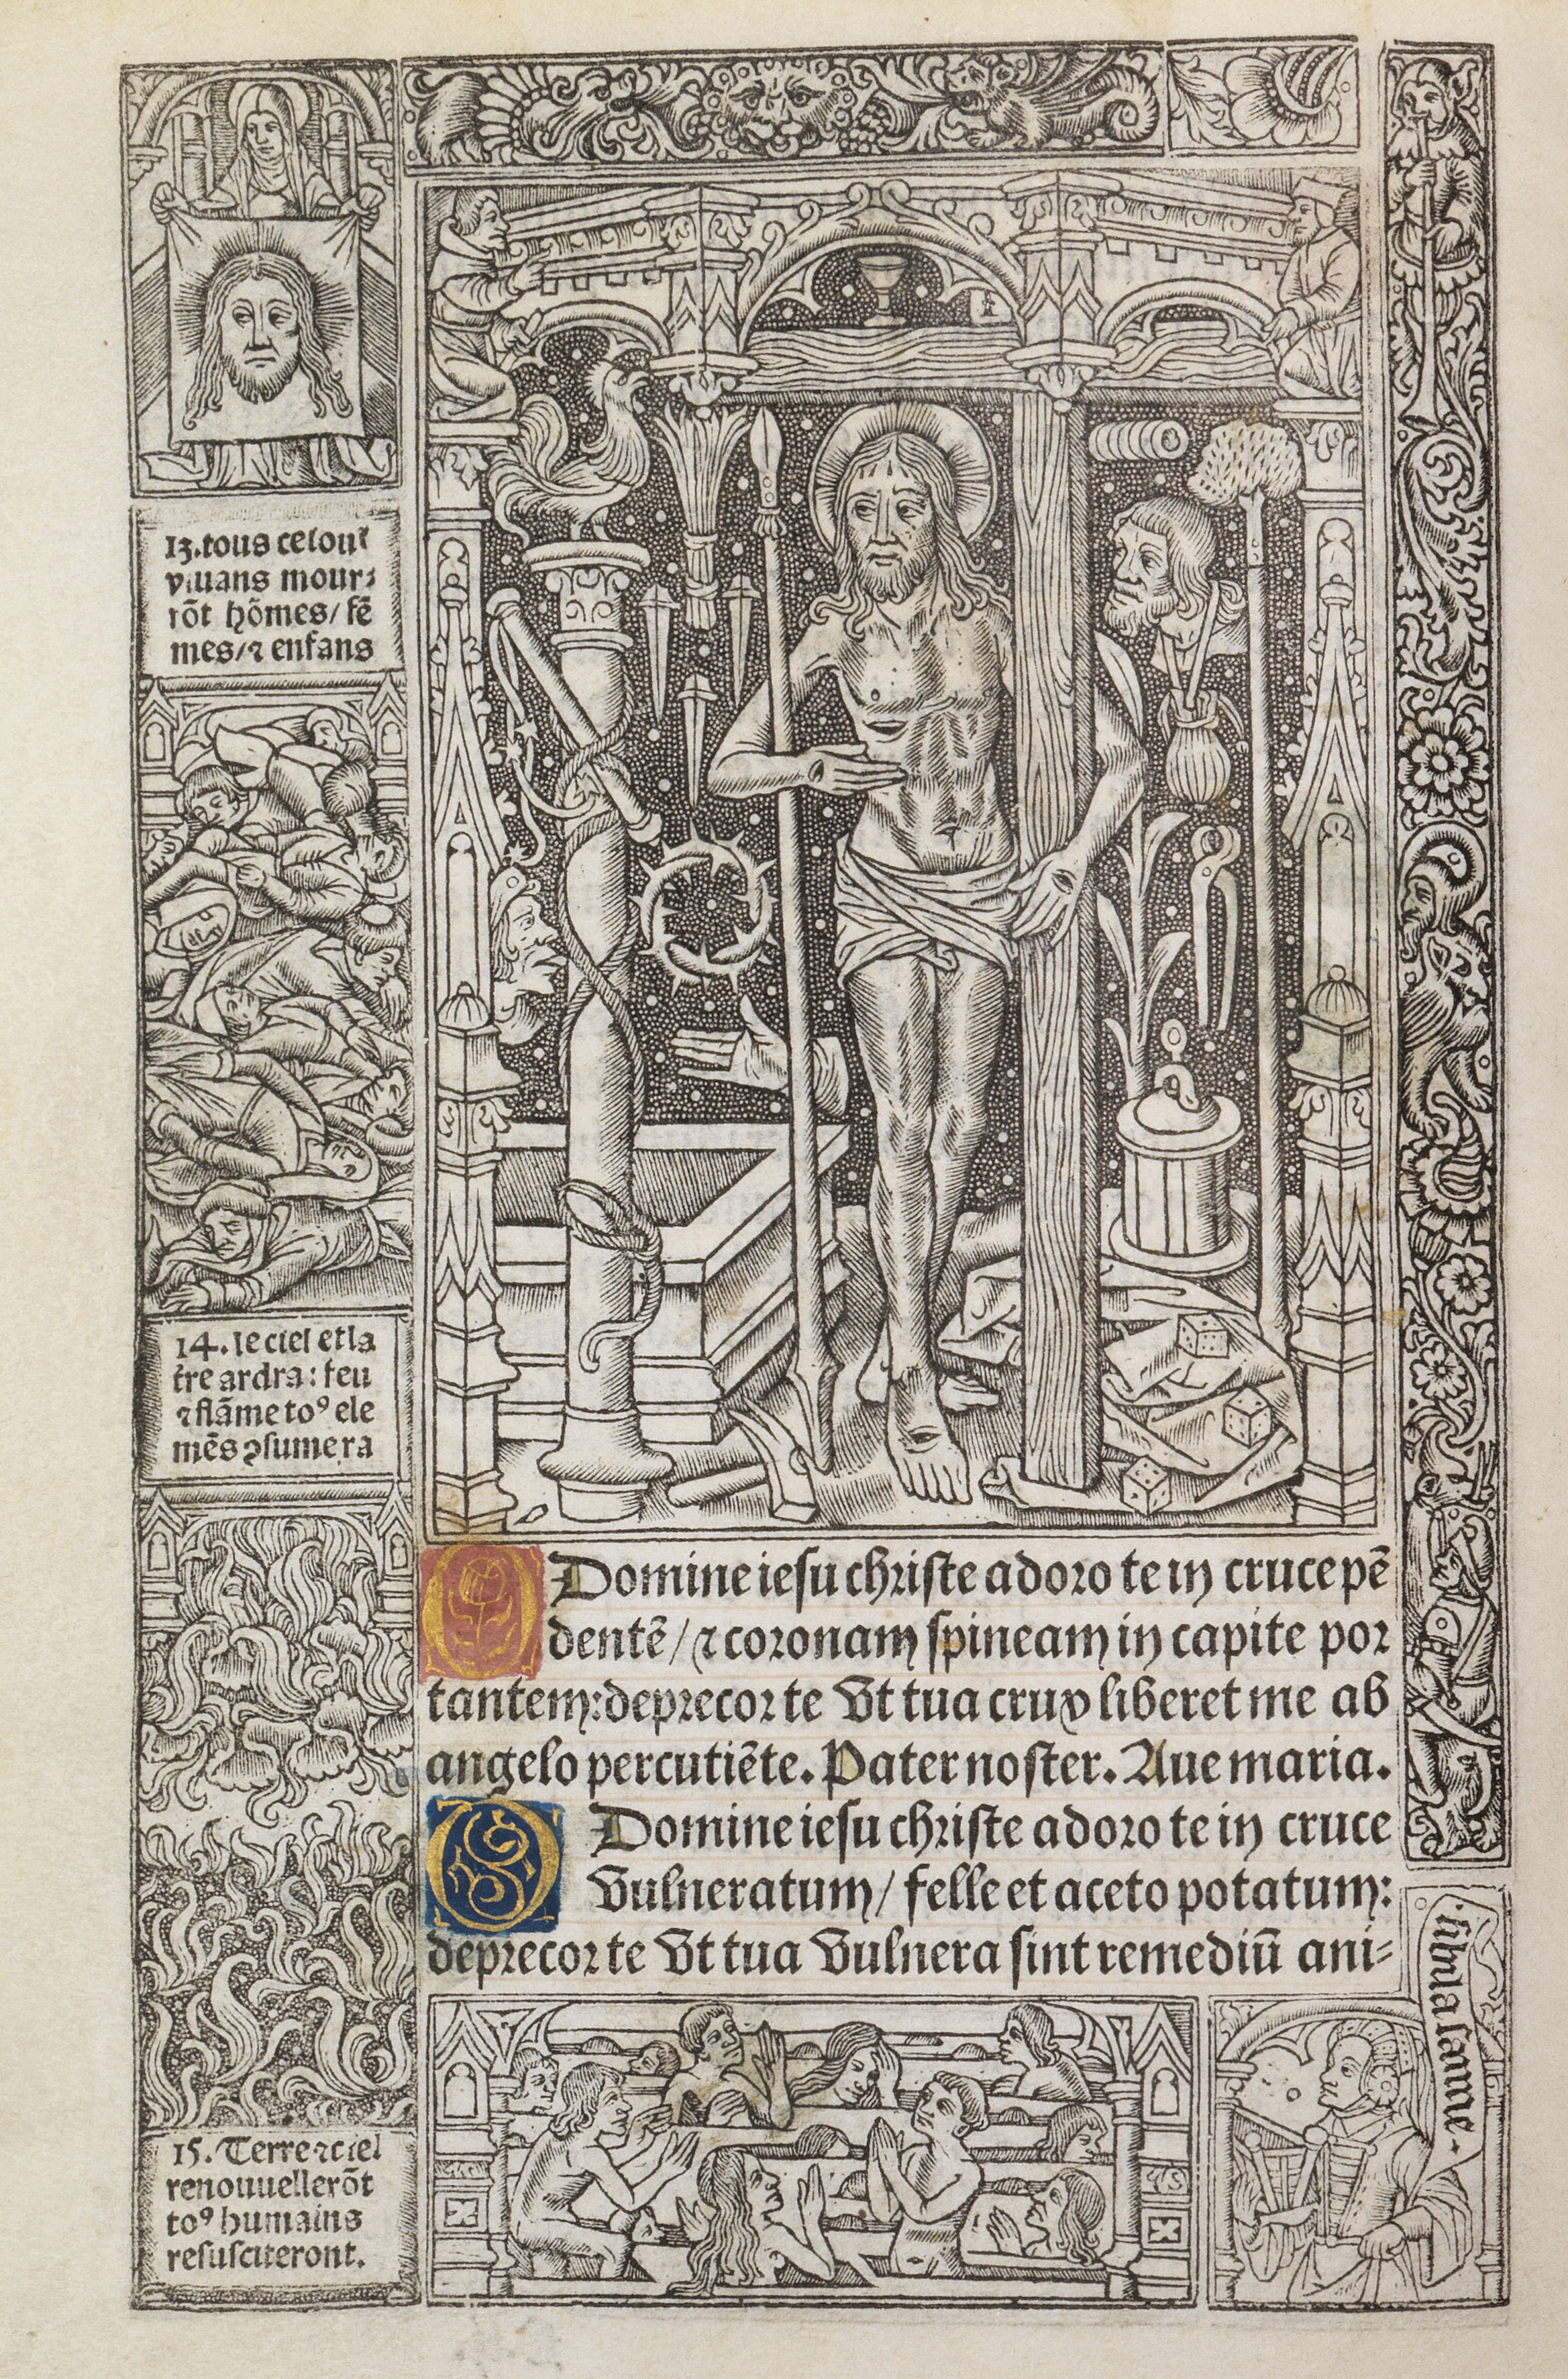 13. tous celoūt
viuans mour⸗
rōt hōmes/ fē
mes/ ⁊ enfans
14. le ciel et la
t̄re ardra: feu
⁊ flāme toꝰ ele
mēs ꝯsumera
15. Terre ⁊ ciel
renouuellerōt
toꝰ humains
resusciteront.
O Domine iesu christe adoro te in cruce pē
dentē/ ⁊ coronam spineam in capite por
tantem: deprecor te Vt tua crux liberet me ab
angelo percutiēte. Pater noster. Aue maria.
O Domine iesu christe adoro te in cruce
Vulneratum/ felle et aceto potatum:
deprecor te Vt tua Vulnera sint remediū ani⸗
sibila same